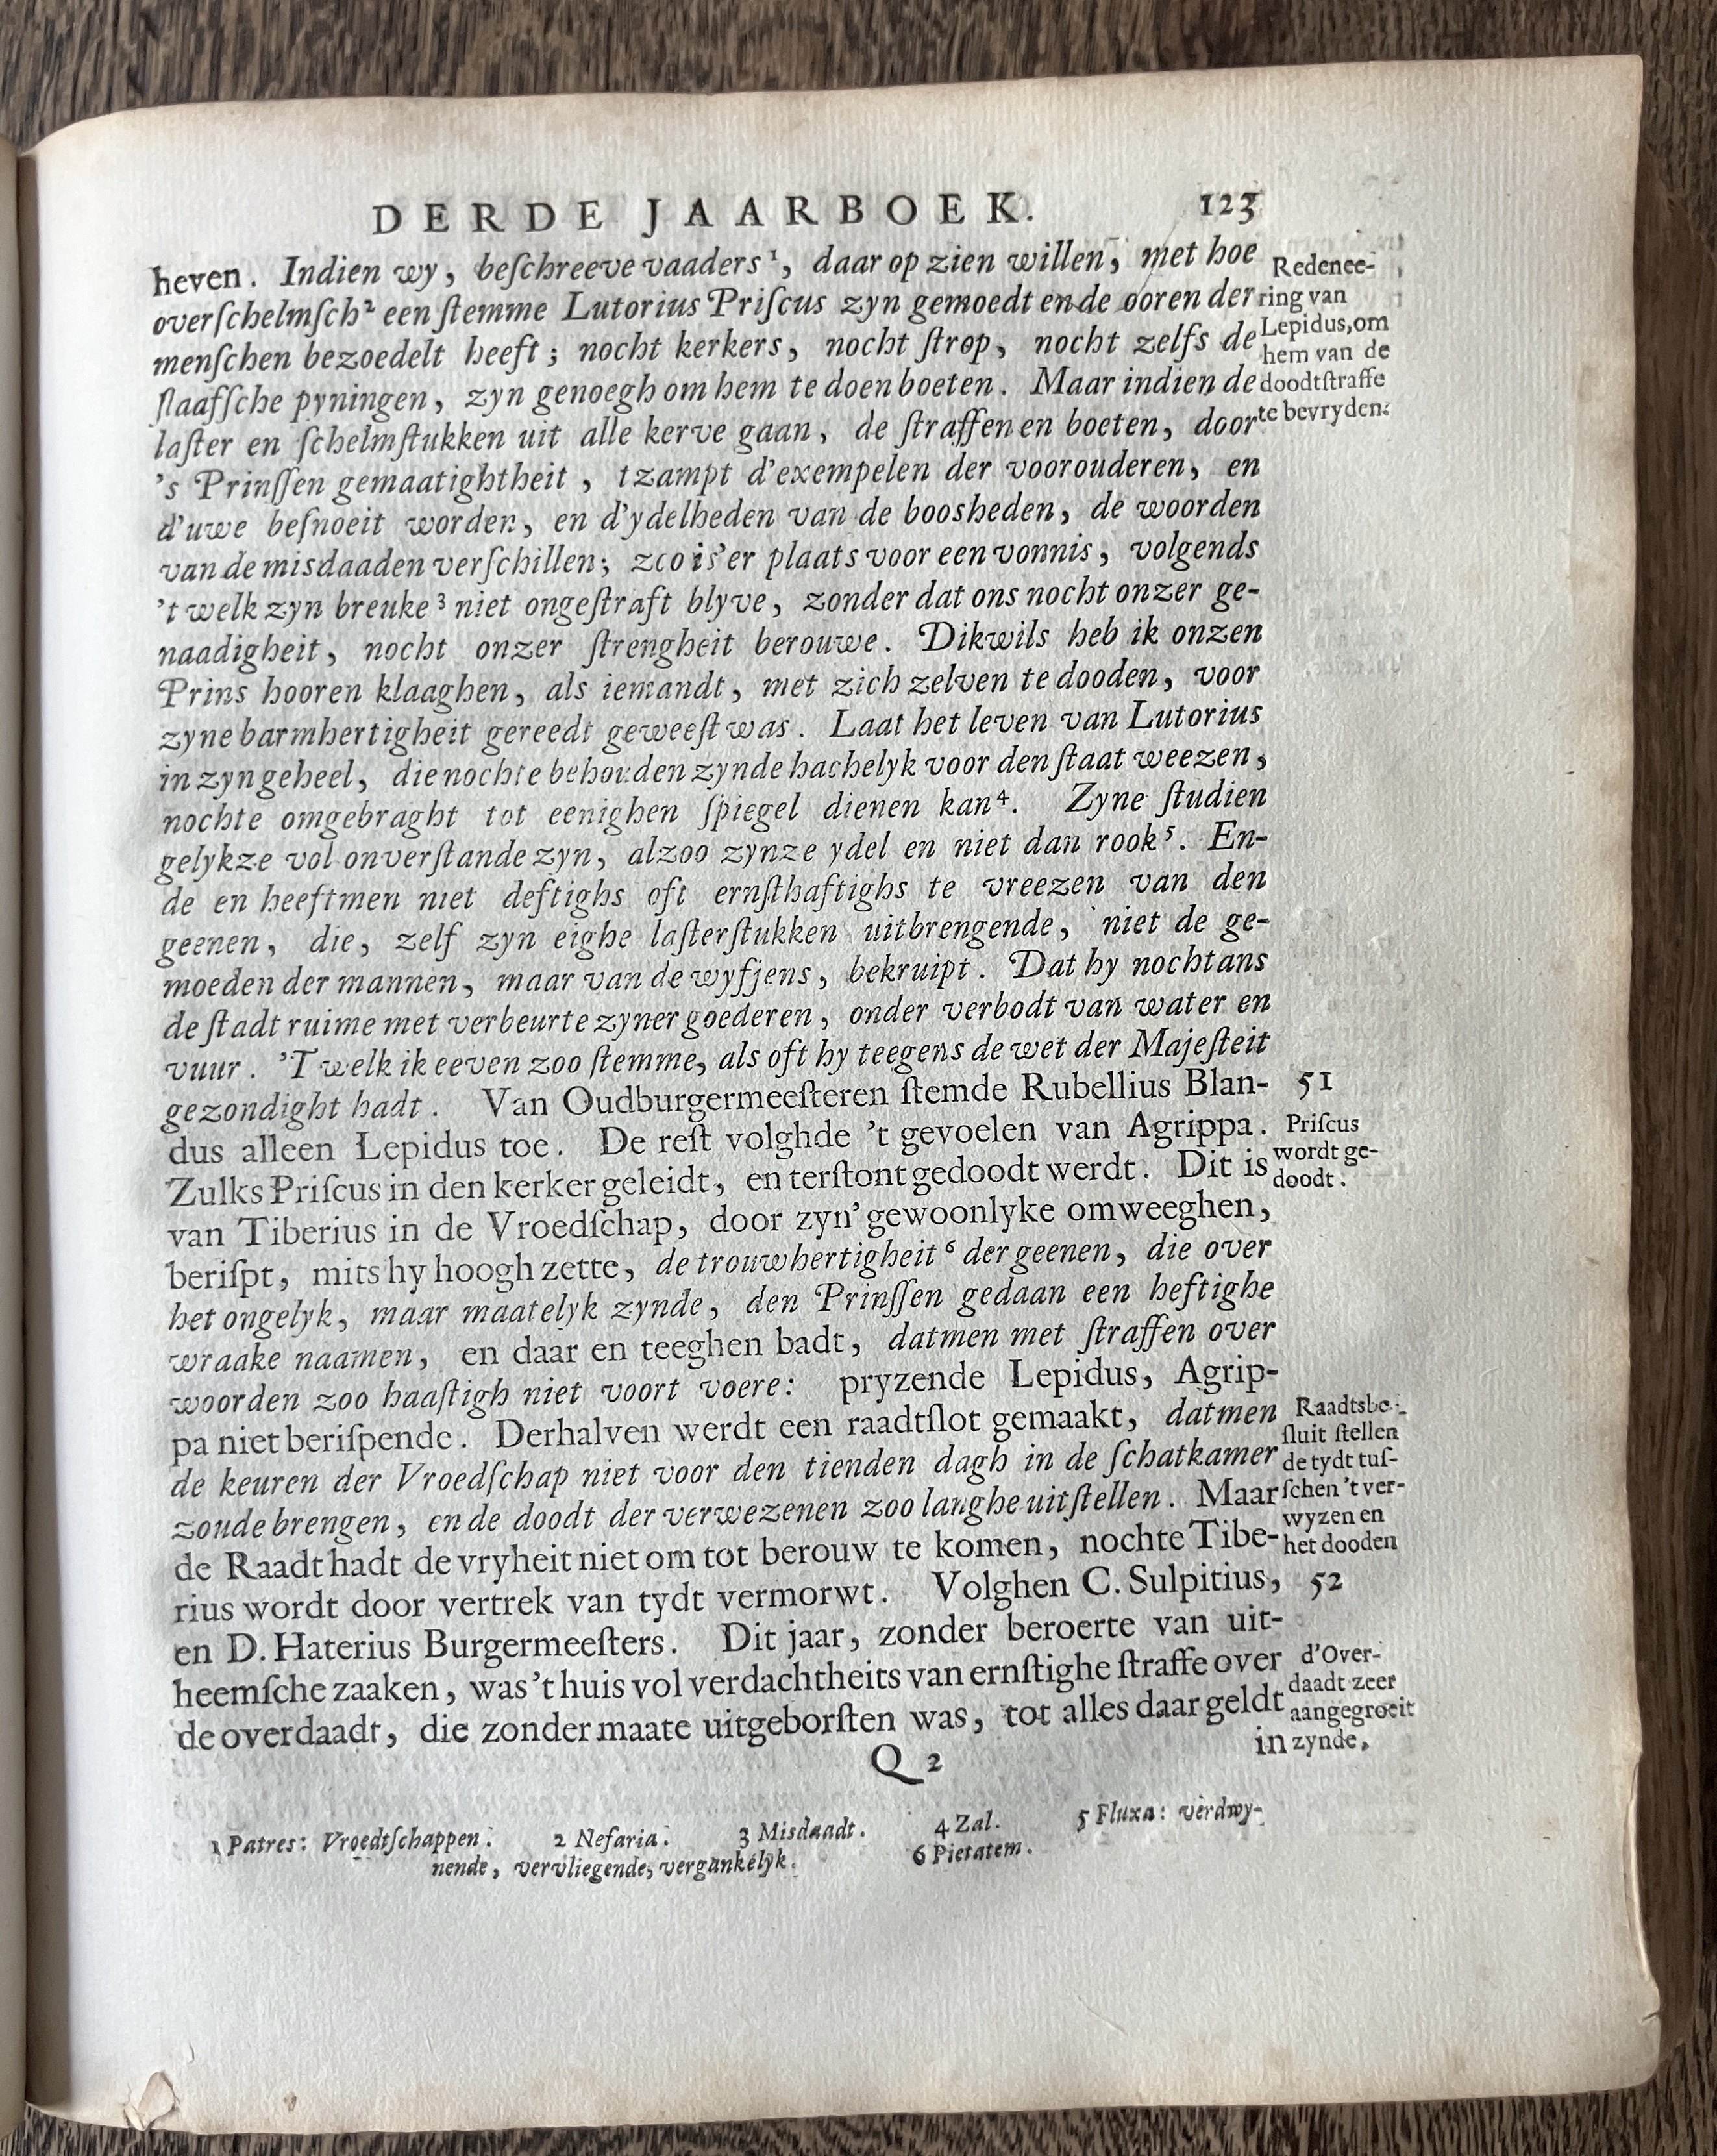 DERDE JAARBOEK. 123
heven. Indien wy, beſchreeve vaaders¹, daar op zien willen, met hoe
overſchelmſch² een ſtemme Lutorius Priſcus zyn gemoedt ende ooren der
menſchen bezoedelt heeft; nocht kerkers, nocht ſtrop, nocht zelfs de
ſlaafſche pyningen, zyn genoegh om hem te doen boeten. Maar indien de
laſter en ſchelmſtukken uit alle kerve gaan, de ſtraffen en boeten, door
's Prinſſen gemaatightheit, tzampt d'exempelen der voorouderen, en
d'uwe beſnoeit worden, en d'ydelheden van de boosheden, de woorden
van de misdaaden verſchillen; zoo is'er plaats voor een vonnis, volgends
't welk zyn breuke³ niet ongeſtraft blyve, zonder dat ons nocht onzer ge-
naadigheit, nocht onzer ſtrengheit berouwe. Dikwils heb ik onzen
Prins hooren klaaghen, als iemandt, met zich zelven te dooden, voor
zyne barmhertigheit gereedt geweeſt was. Laat het leven van Lutorius
in zyn geheel, die nochte behouden zynde hachelyk voor den ſtaat weezen,
nochte omgebraght tot eenighen ſpiegel dienen kan⁴. Zyne ſtudien
gelykze vol onverſtande zyn, alzoo zynze ydel en niet dan rook⁵. En-
de en heeftmen niet deftighs oft ernſthaftighs te vreezen van den
geenen, die, zelf zyn eighe laſterſtukken uitbrengende, niet de ge-
moeden der mannen, maar van de wyfjens, bekruipt. Dat hy nochtans
de ſtadt ruime met verbeurte zyner goederen, onder verbodt van water en
vuur. 'T welk ik eeven zoo ſtemme, als oft hy teegens de wet der Majeſteit
gezondight hadt. Van Oudburgermeeſteren ſtemde Rubellius Blan-
dus alleen Lepidus toe. De reſt volghde 't gevoelen van Agrippa.
Zulks Priſcus in den kerker geleidt, en terſtont gedoodt werdt. Dit is
van Tiberius in de Vroedſchap, door zyn' gewoonlyke omweeghen,
beriſpt, mits hy hoogh zette, de trouwhertigheit⁶ der geenen, die over
het ongelyk, maar maatelyk zynde, den Prinſſen gedaan een heftighe
wraake naamen, en daar en teeghen badt, datmen met ſtraffen over
woorden zoo haaſtigh niet voort voere: pryzende Lepidus, Agrip-
pa niet beriſpende. Derhalven werdt een raadtſlot gemaakt, datmen
de keuren der Vroedſchap niet voor den tienden dagh in de ſchatkamer
zoude brengen, en de doodt der verwezenen zoo langhe uitſtellen. Maar
de Raadt hadt de vryheit niet om tot berouw te komen, nochte Tibe-
rius wordt door vertrek van tydt vermorwt. Volghen C. Sulpitius,
en D. Haterius Burgermeeſters. Dit jaar, zonder beroerte van uit-
heemſche zaaken, was 't huis vol verdachtheits van ernſtighe ſtraffe over
de overdaadt, die zonder maate uitgeborſten was, tot alles daar geldt
in
Q 2
Redenee-
ring van
Lepidus, om
hem van de
doodtſtraffe
te bevryden.
51
Priſcus
wordt ge-
doodt.
Raadtsbe-
ſluit ſtellen
de tydt tuſ-
ſchen 't ver-
wyzen en
het dooden
52
d'Over-
daadt zeer
aangegroeit
zynde.
1 Patres: Vroedtſchappen. 2 Nefaria. 3 Misdaadt. 4 Zal. 5 Fluxa: verdwy-
nende, vervliegende, vergankelyk. 6 Pietatem.